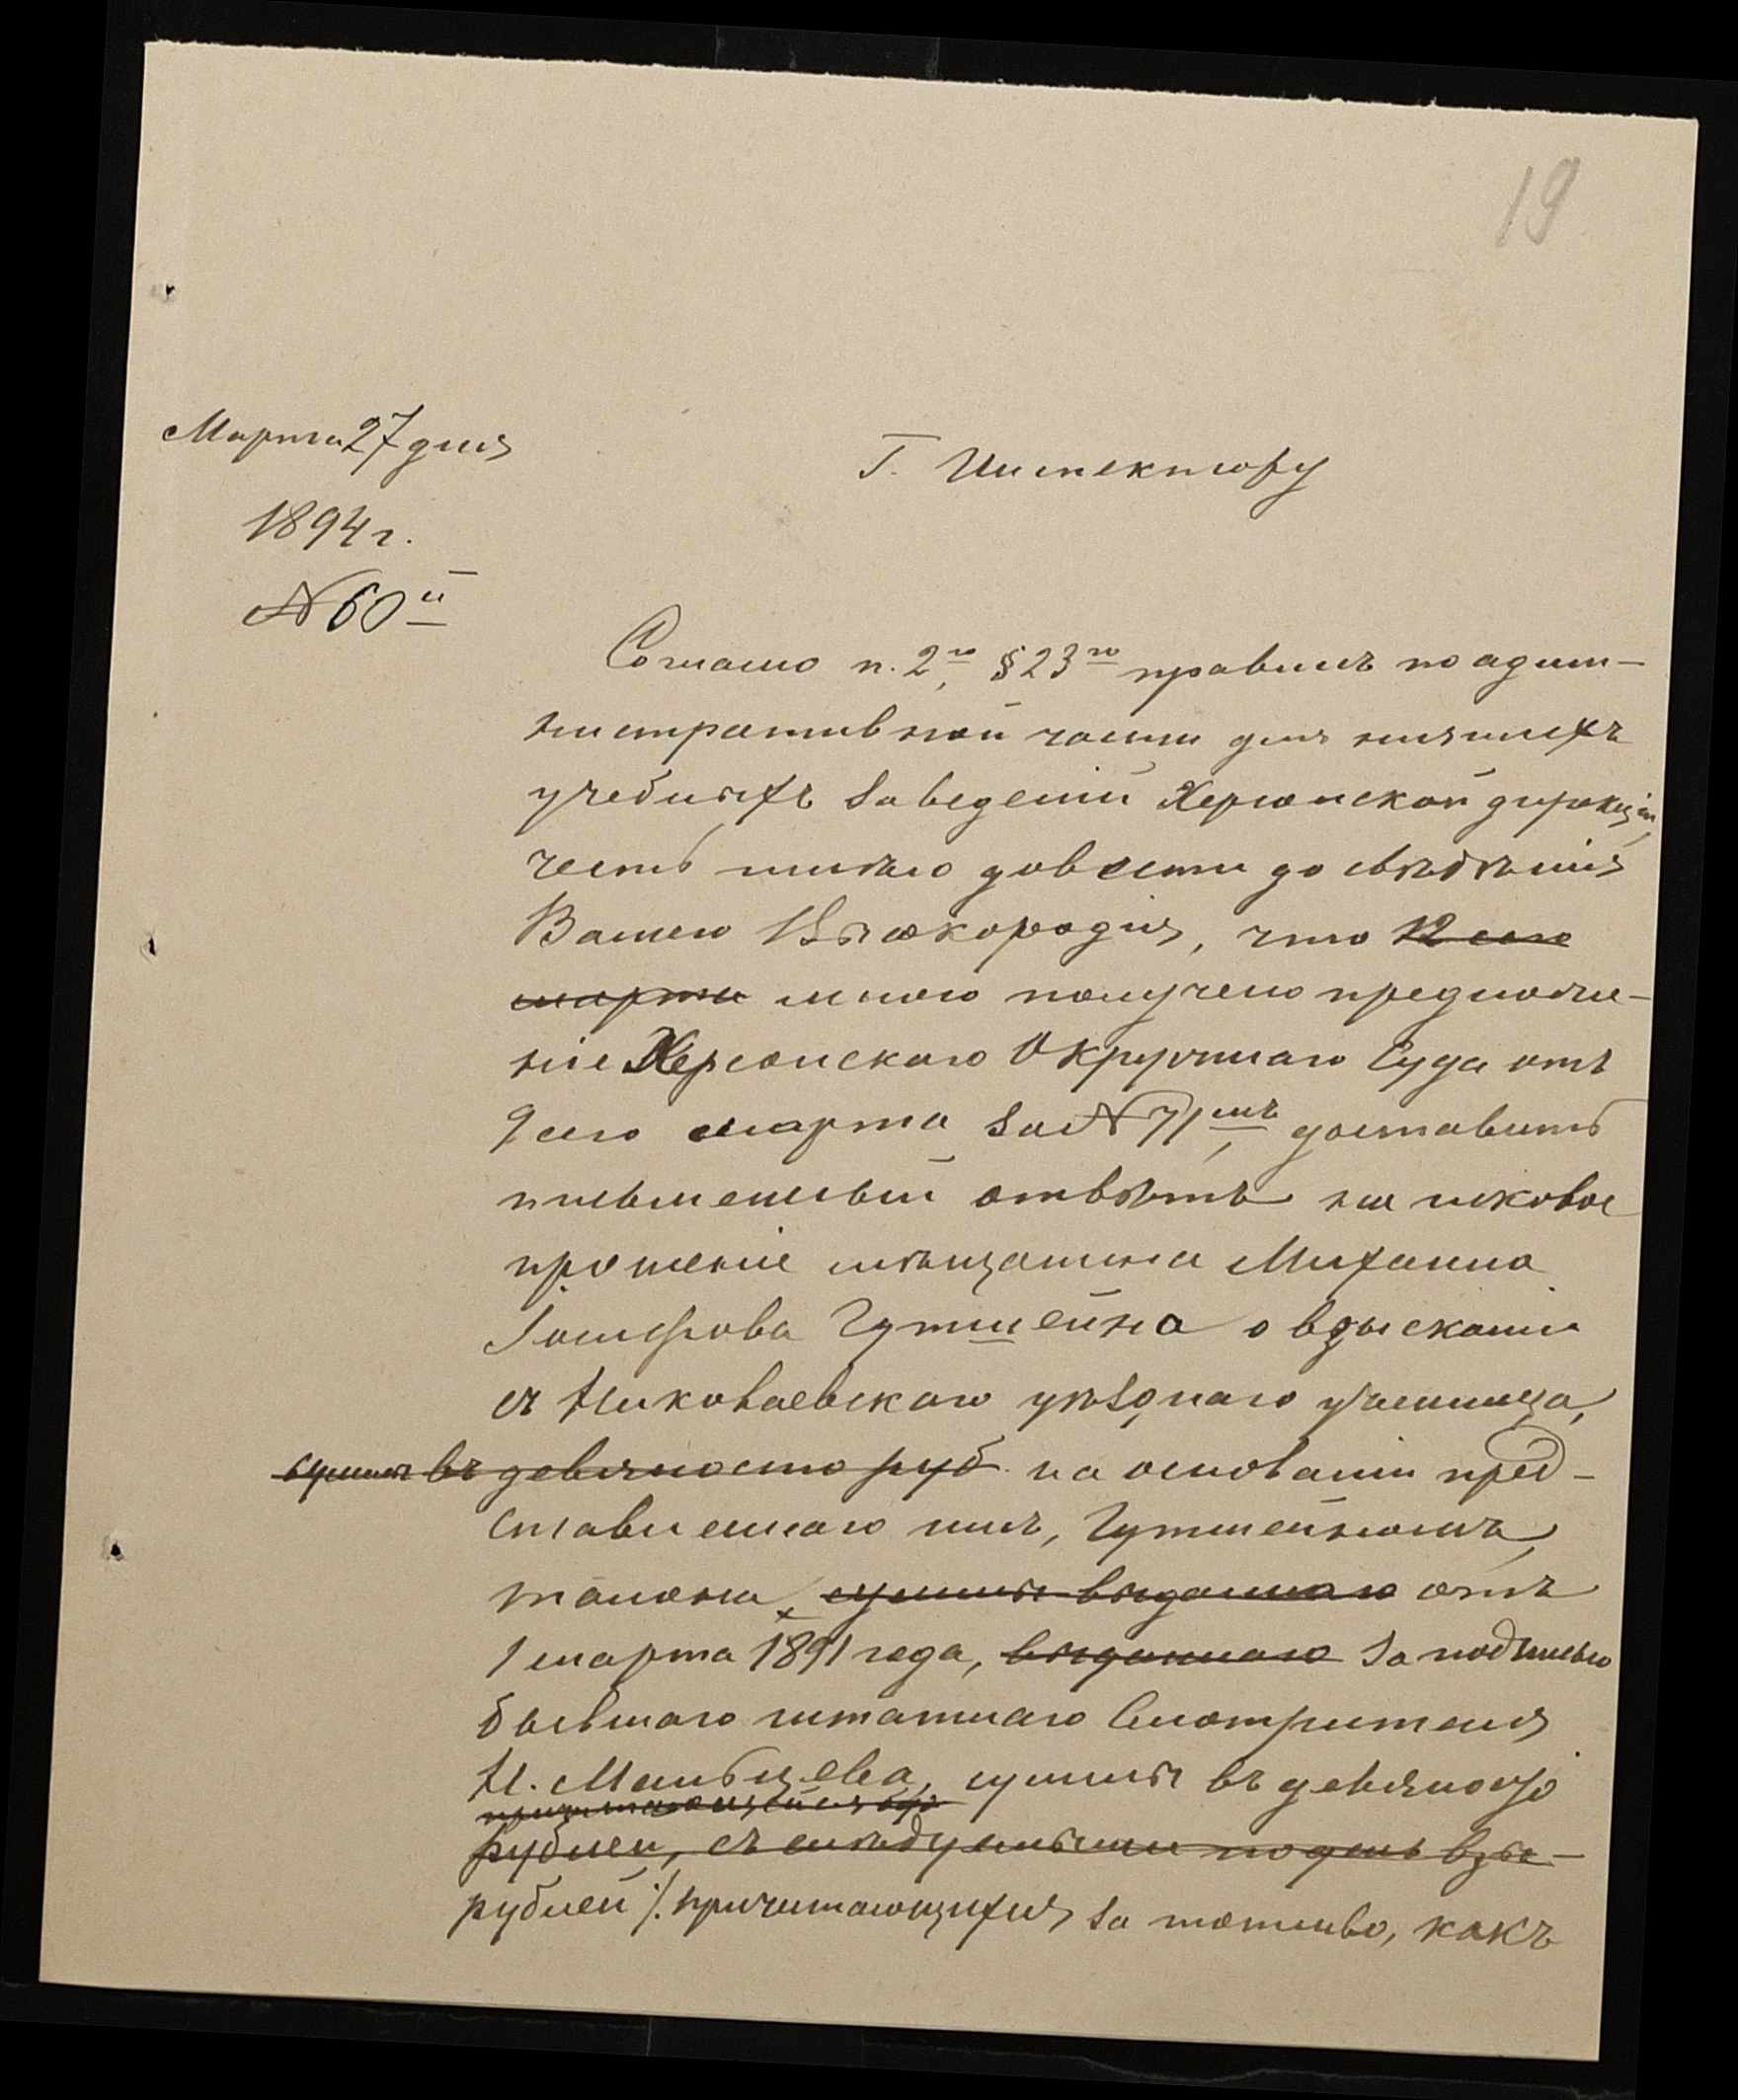 19
Марта 27 дня
1894 г.
№ 60й
Г. Инспектору
Согласно п. 2го, § 23го правилъ по адми-
нистративной части для низшихъ
учебныхъ заведеній Херсонской дирекціи,
честь имѣю довести до свѣдѣнія
Вашего Высокородія, что 12 сего
марта мною получено предложе-
ніе Херсонскаго Окружнаго Суда отъ
9 сего марта за № 71мъ, доставить
письменный отвѣтъ на исковое
прошеніе мѣщанина Михаила
Іосифова Гутшейна о взысканіи
съ Николаевскаго уѣзднаго училища,
суммы въ девяносто руб. на основаніи пред-
ставленнаго имъ, Гутшейномъ,
талона, суммы выданнаго отъ
1 марта 1891 года, выданнаго за подписью
бывшаго штатнаго Смотрителя
Н. Мальцева, суммы въ девяносто
рублей, съ слѣдуемыми по день взы-
рублей ·/. причитающихся за топливо, какъ